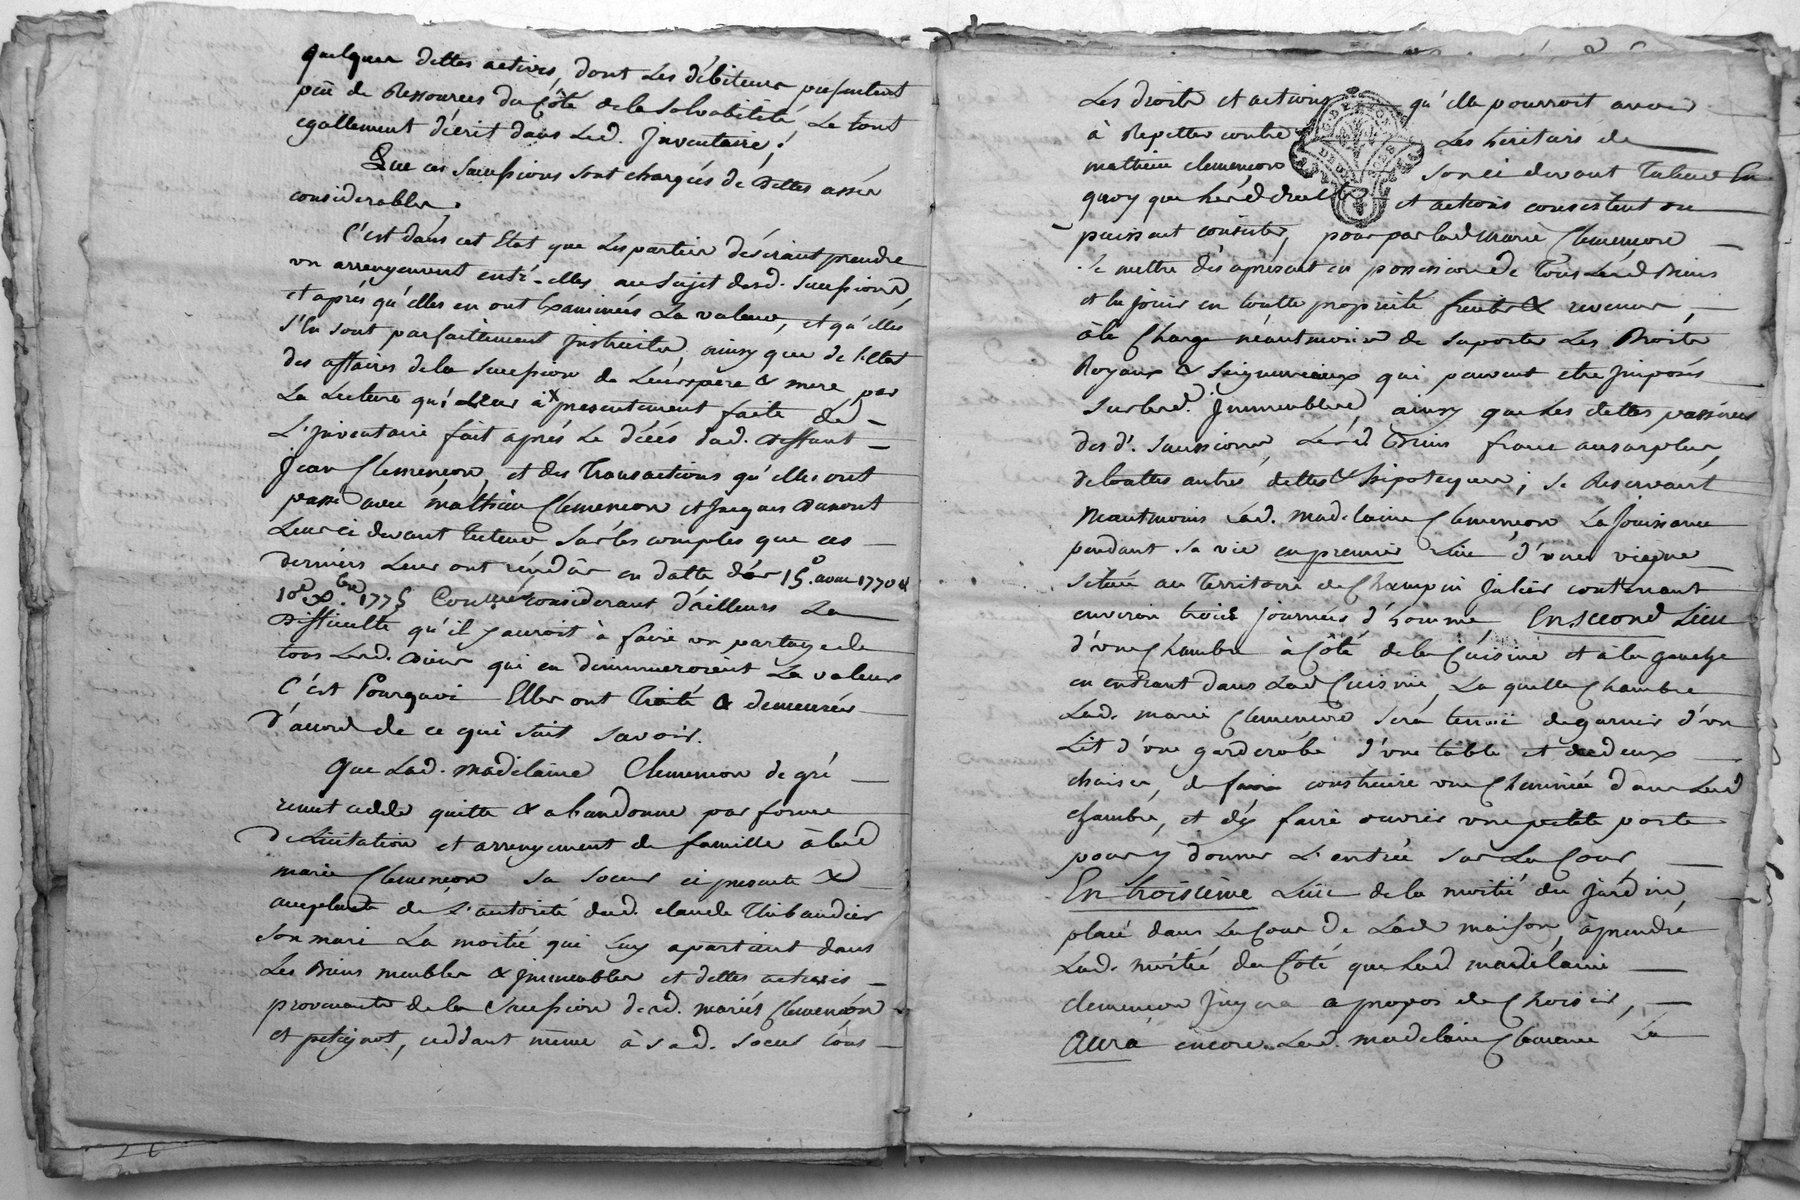 quelques dettes actives, dont les débiteurs présentent
peü de Ressources du Côté de la Solvabiteté, Le tout
egallement d'écrit dans Led. Inventaire;
Que ces Sucessions sont chargées de dettes assés
considerables.
C'est dans cet Etat que Les parties désirant prendre
un arrengement entre-elles au Sujet desd. Sucessions,
et aprés qu'elles en ont Examinées La valeur, et qu'elles
s'En sont parfaitement Instruites, ainsy que de l'Etat
des affaires de la Sucession de Leurs père & mere, par
La Lecture qui Leur à presentement faite de
L'Inventaire fait aprés Le décés dud. deffunt
Jean Clemençon, et des Transactions qu'elles ont
passé avec mathieu Clemençon et Jacques
Leur ci devant Tuteur Sur les comptes que ces
derniers Leur ont rendûs en datte dés 15.e avril 1770 &
10e. Xbre 1775 considerant d'ailleurs La
difficulté qu'il y auroit à faire un partage de
tous Lesd. Biens qui en diminueroient La valeur
C'est Pourquoi Elles ont Traité & demeurées
d'accord de ce qui suit savoir.
Que Lad. madelaine Clemençon de gré
cedde quitte & abandonne par forme
de Licitation et arrengement de famille à lad
marie Clemençon sa soeur ci presente &
acceptante de L'autorité dud. claude Thibaudier
son mari La moitié qui Luy apartient dans
Les Biens meubles & immeubles et dettes actives
provenants de la Sucession desd. mariés Clemençon
et petignot, ceddant même à Sad. soeur tous
Les droits et actions qu'elle pourroit avoir
à Repetter contre Les héritiers de
mathieu clemençon son ci devant Tuteur En
quoy que lesd droits et actions consistent ou
puissent consister, pour par lad marie Clemençon
Se mettre dès aprésent en possession de Tous Lesd Biens
et En jouir en toutte propriété fruits & revenus,
à la Charge néantmoins de suporter Les Droits
Royaux & Seigneuriaux qui peuvent etre Imposés
sur lesd. Immeubles, ainsy que Les dettes passives
des d. sucessions, Lesd Biens francs au surplus,
de touttes autres dettes & hipoteques; se Reservant
Neantmoins Lad. madelaine Clemençon La Jouissance
pendant sa vie en premier Lieu d'une vigne
située au Territoire de Champ Julien contenant
environ trois journées d'homme En second Lieu
d'une Chambre à Côté de la Cuisine et à la gauche
en entrant dans Lad Cuisine, La quelle Chambre
Lad. marie Clemençon sera tenue de garnir d'un
Lit d'une garderobe d'une table et de deux
chaises, de faire construire une Cheminée dans Lad
chambre, et d'y faire ouvrir une petite porte
pour y donner L'entrée sur La Cour
En troisième Lieu de la moitié du jardin,
placé dans La Cour de Lad maison, à prendre
Lad. moitié du Côté que Lad madelaine
clemençon Jugera a propos de Choisir,
Aura encore Lad. madelaine Clemençon La